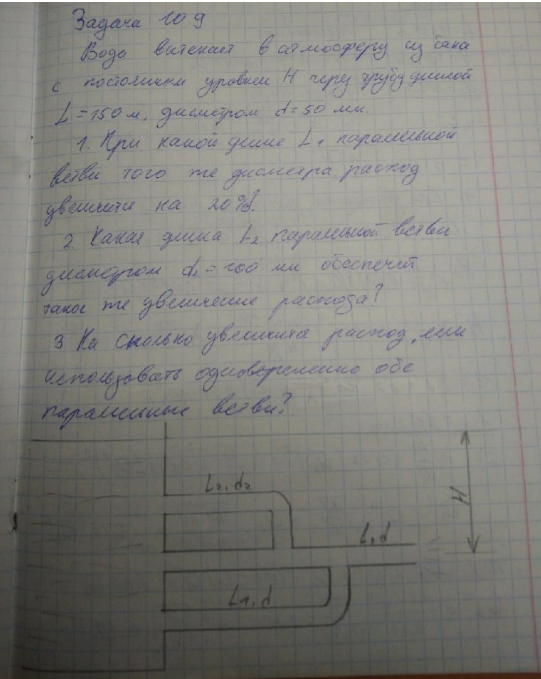 Задача 10 9
Вода витекает в атмосферу из бака
с постоянным уровнем H через трубу длиной
L = 150 м, диаметром d = 50 мм.
1. При какой длине L1 паралельной
ветви того же диаметра расход
увеличится на 20%?
2. Какая длина L2 паралельной ветви
диаметром d2 = 100 мм обеспечит
такое же увеличение расхода?
3 На сколько увеличится расход, если
использовать одновременно обе
паралельные ветви?
L2, d2
L, d
H
L1, d